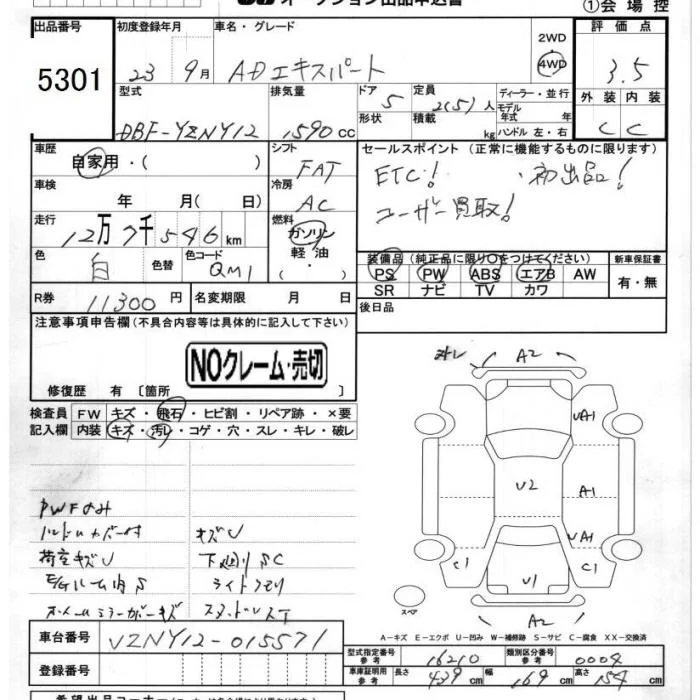 オークション出品申込書
①会場控
出品番号 初度登録年月 車名・グレード 評価点
5301 23 9月 ADエキスパート 2WD 4WD 3.5
型式 排気量 ドア 定員 ディーラー・並行 外装 内装
DBF-VZNY12 1590cc 5 2(5)人 モデル年式 年 C C
形状 積載 kg ハンドル 左・右
車歴 シフト セールスポイント(正常に機能するものに限ります)
自家用・( ) FAT ETC! ・初出品!
車検 冷房 ユーザー買取!
年 月( 日) AC
走行 燃料
12万7千546km ガソリン
軽油
・( )
色 色替 色コード
白 QM1
装備品(純正品に限り○をつけてください) 新車保証書
PS PW ABS エアB AW 有・無
SR ナビ TV カワ
R券 11300円 名変期限 月 日
後日品
注意事項申告欄(不具合内容等は具体的に記入して下さい)
NOクレーム・売切
修復歴 有〔箇所 〕
検査員 FW キズ・飛石・ヒビ割・リペア跡・×要
記入欄 内装 キズ・汚レ・コゲ・穴・スレ・キレ・破レ
A2
UA1
U2 A1
UA1
C1 C1
U1
A2
スペア
PWFのみ
ハンドルカバー付 キズU
荷室キズU 下廻りSC
E/Gルーム内S ライトクモリ
ルームミラーカバーキズ スタッドレスT
A-キズ E-エクボ U-凹み W-補修跡 S-サビ C-腐食 XX-交換済
車台番号 VZNY12-015571
型式指定番号 参考 16210 類別区分番号 参考 0004
登録番号
車庫証明用 参考 長さ 439cm 幅 169cm 高さ 154cm
希望出品コーナー